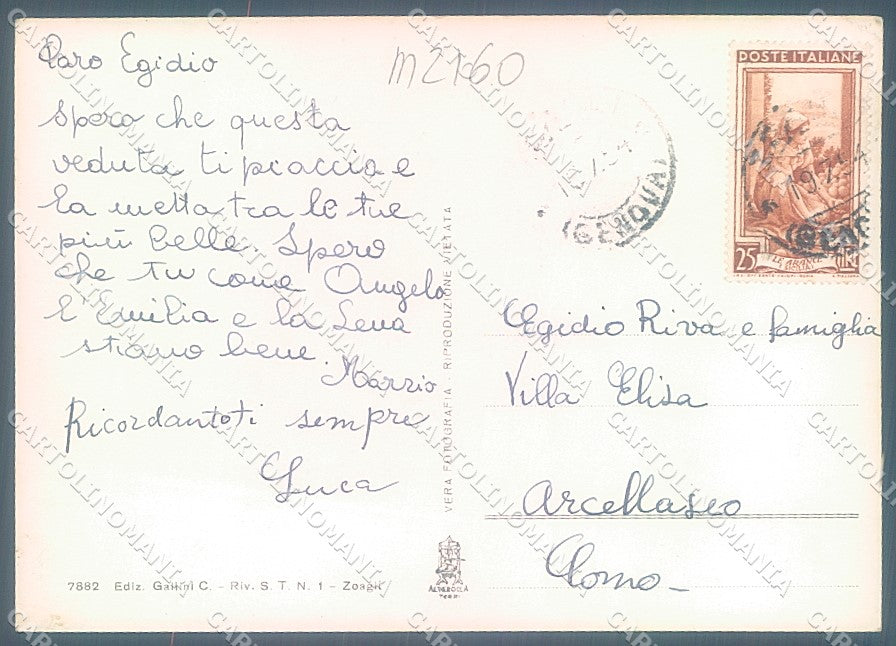 Caro Egidio
m2160
spero che questa
veduta ti piaccia e
la metta tra le tue
più belle. Spero
che tu come Angelo
E Emilia e la Lena
stiano bene.
Marzio
Ricordantoti sempre
Luca
7882 Ediz. Gallini C. - Riv. S. T. N. 1 - Zoagli
VERA FOTOGRAFIA - RIPRODUZIONE VIETATA
ALTEROCCA
TERNI
(GENOVA)
POSTE ITALIANE
25
LE ARANCE
Egidio Riva e famiglia
Villa Elisa
Arcellasco
Como -
CARTOLINOMANIA